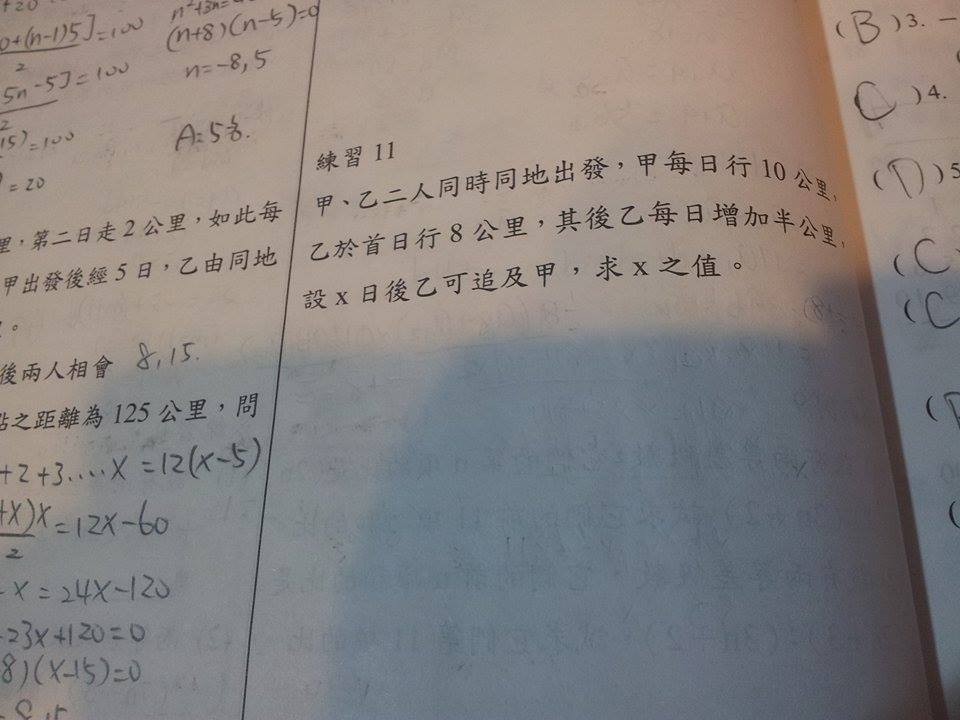 +20
0+(n-1)5]=100
2
5n-5]=100
2
15)=100
)=20
(n+8)(n-5)=0
n=-8,5
里,第二日走2公里,如此每
甲出發後經5日,乙由同地
。
後兩人相會 8,15.
點之距離為125公里,問
+2+3....x=12(x-5)
+x)x
2
=12x-60
x=24x-120
-23x+120=0
8)(x-15)=0
8,15
練習 11
甲、乙二人同時同地出發,甲每日行 10 公里,
乙於首日行 8 公里,其後乙每日增加半公里,
設 x 日後乙可追及甲,求 x 之值。
(B)3. 一
)4.
(D)5
(C
(C
(
(